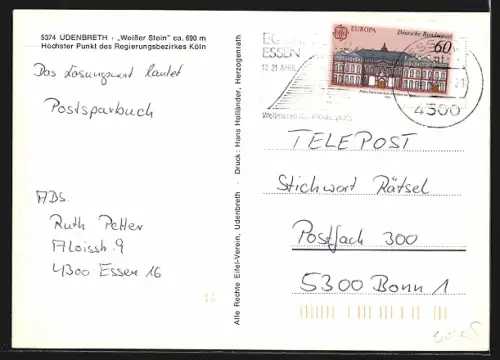 5374 UDENBRETH · „Weißer Stein" ca. 690 m
Höchster Punkt des Regierungsbezirkes Köln
Das Losungswort lautet
Postsparbuch
ADS.
Ruth Petter
Aloisstr. 9
4300 Essen 16
Alle Rechte Eifel-Verein, Udenbreth · Druck: Hans Holländer, Herzogenrath
ESSEN
EUROPA
Deutsche Bundespost
60
4300
TELEPOST
Stichwort Rätsel
Postfach 300
5300 Bonn 1